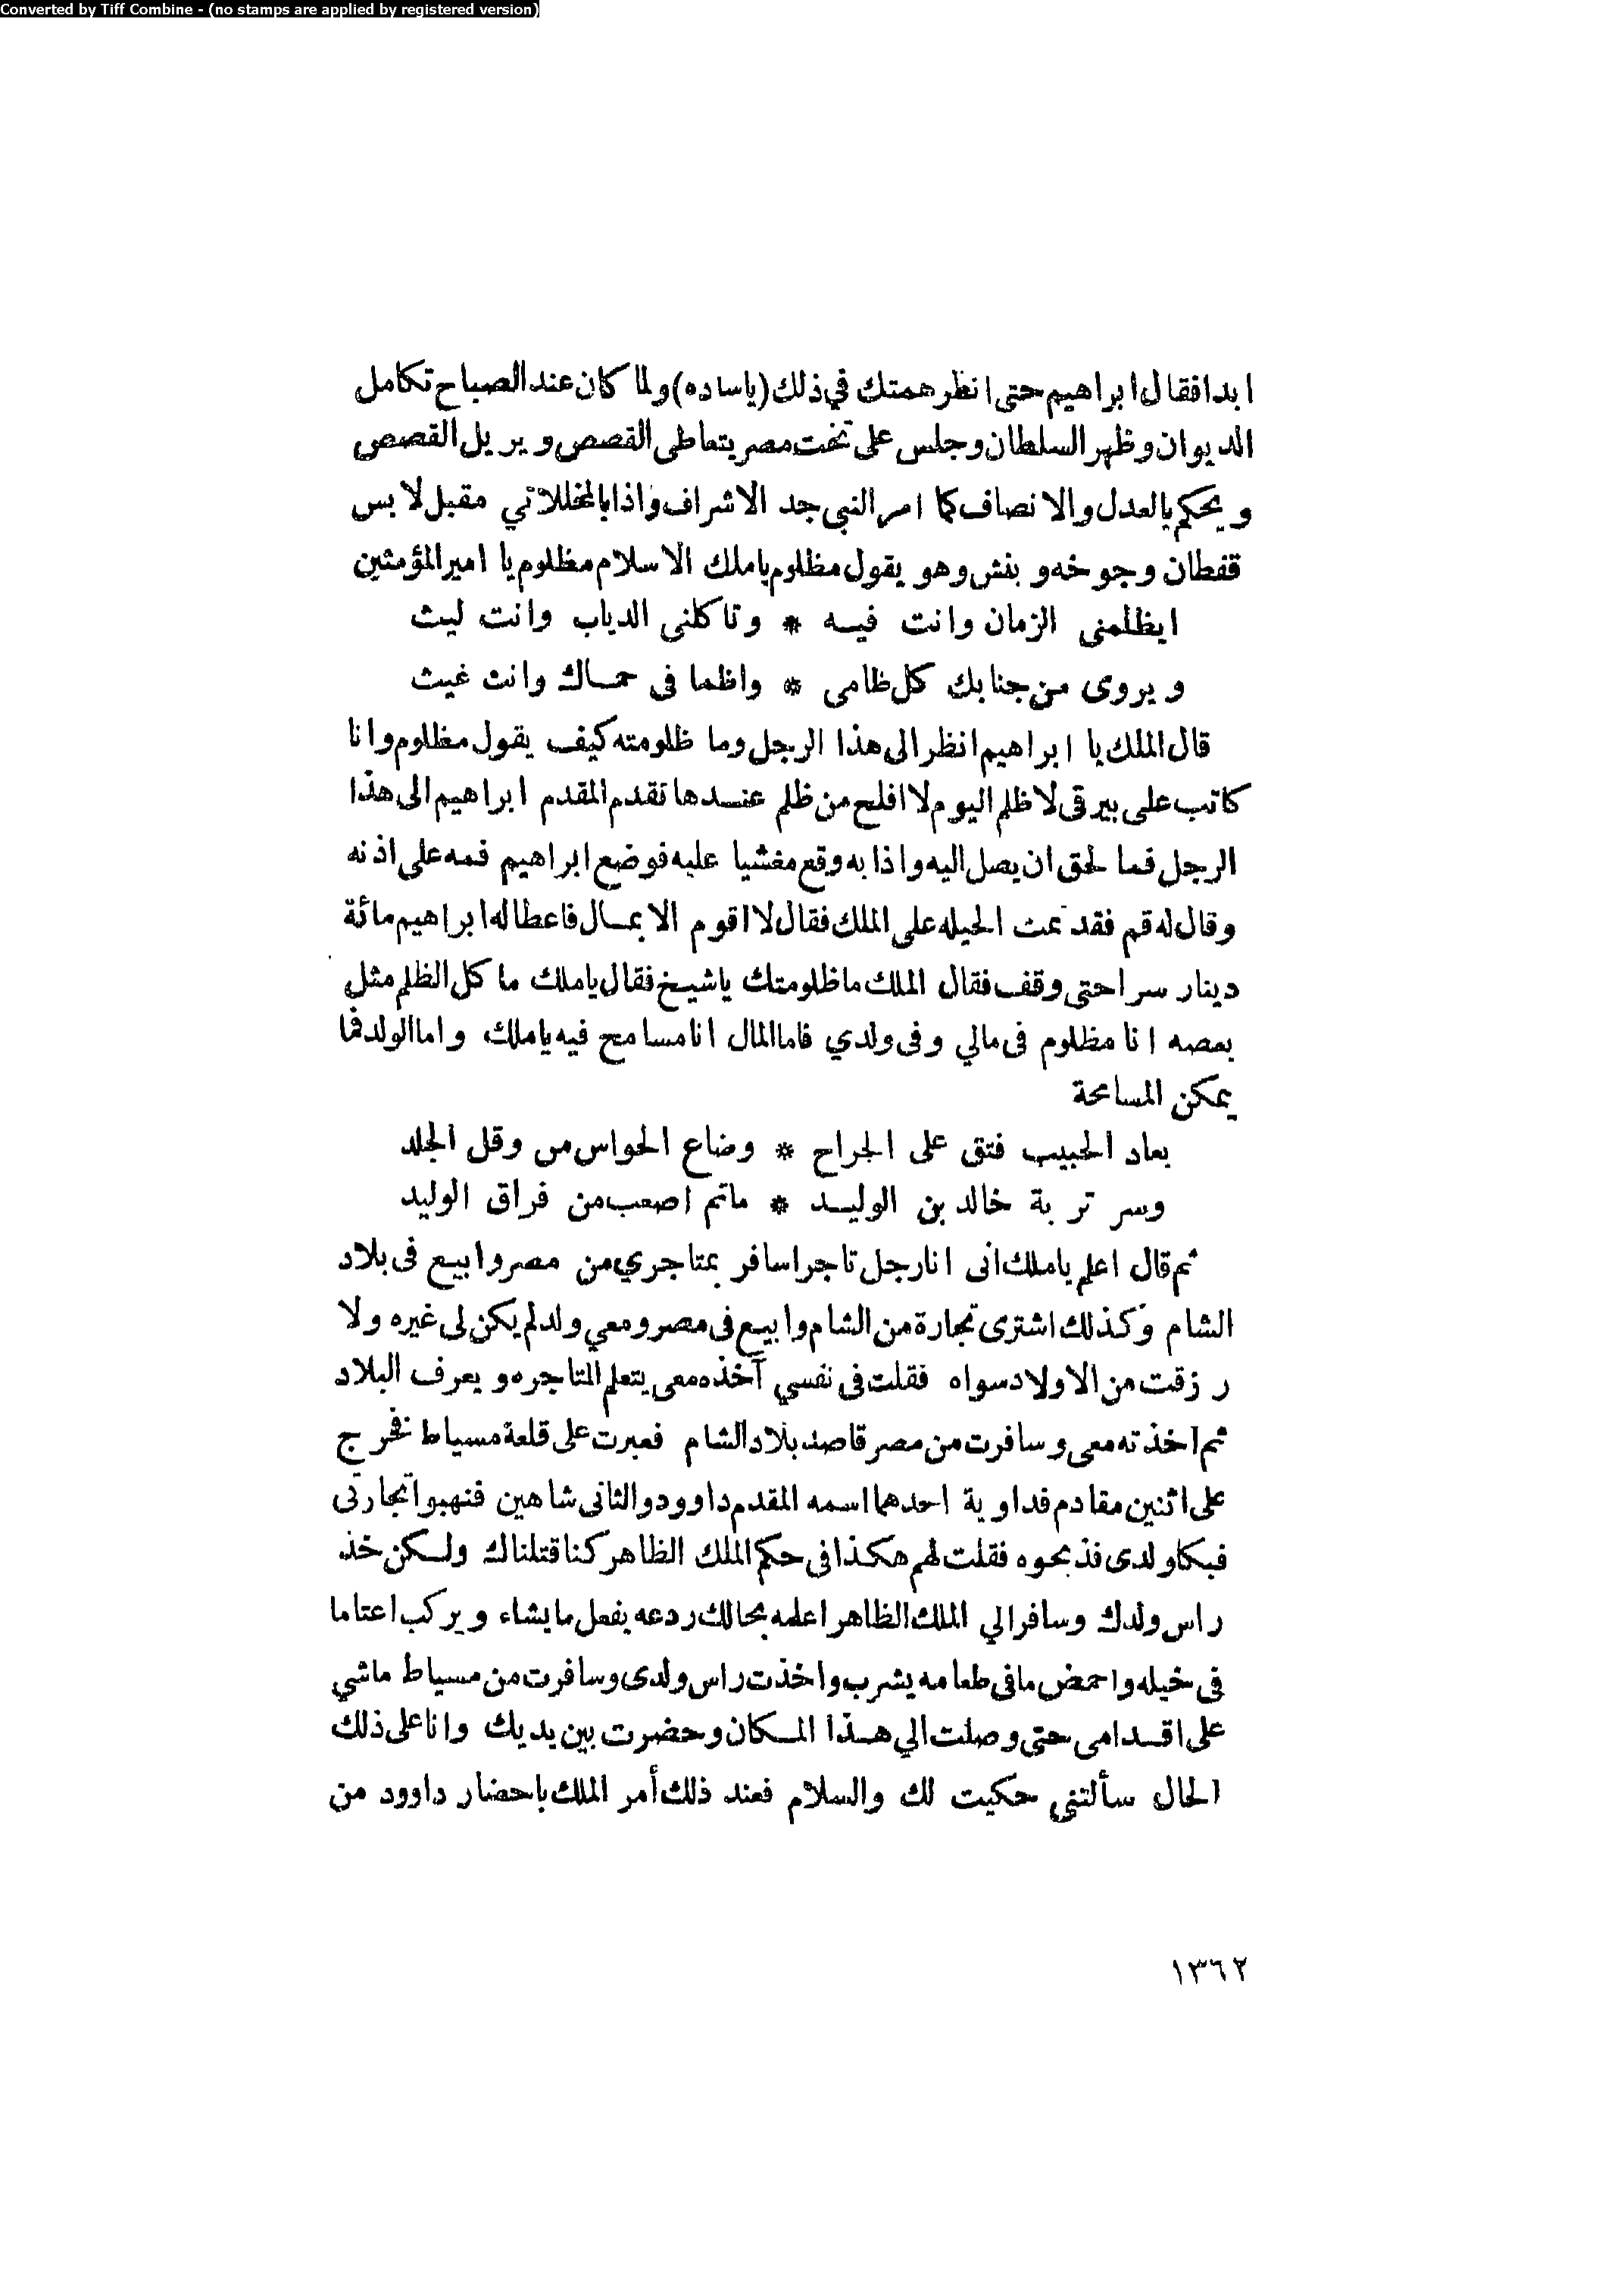 Converted by Tiff Combine - (no stamps are applied by registered version)
ابدا فقال ابراهيم حتى انظر همتك في ذلك (ياساده) ولما كان عند الصباح تكامل
الديوان وظهر السلطان وجلس على تخت مصر يتعاطى القصص ويريل القصص
ويحكم بالعدل والانصاف كما امر النبي جد الاشراف واذا بالمخللاتي مقبل لابس
قفطان وجوخه وبنش وهو يقول مظلوم ياملك الاسلام مظلوم يا امير المؤمنين
ايظلمنى الزمان وانت فيه * وتاكلنى الدياب وانت ليث
ويروى من جنابك كل ظامى * واظما فى حماك وانت غيث
قال الملك يا ابراهيم انظر الى هذا الرجل وما ظلومته كيف يقول مظلوم وانا
كاتب على بيرقى لا ظلم اليوم لا افلح من ظلم عندها تقدم المقدم ابراهيم الى هذا
الرجل فما لحق ان يصل اليه واذا به وقع مغشيا عليه فوضع ابراهيم فمه على اذنه
وقال له قم فقد تمت الحيله على الملك فقال لا اقوم الا بمال فاعطا له ابراهيم مائة
دينار سرا حتى وقف فقال الملك ماظلومتك ياشيخ فقال ياملك ما كل الظلم مثل
بعضه انا مظلوم فى مالي وفى ولدي فاما المال انا مسامح فيه ياملك واما الولد فما
يمكن المسامحة
بعاد الحبيب فتق على الجراح * وضاع الحواس من وقل الجلد
وسر تربة خالد بن الوليد * ماتم اصعب من فراق الوليد
ثم قال اعلم ياملك انى انا رجل تاجر اسافر بمتاجري من مصر وابيع فى بلاد
الشام وكذلك اشترى تجارة من الشام وابيع فى مصر ومعي ولد لم يكن لى غيره ولا
رزقت من الاولاد سواه فقلت فى نفسي آخذه معى يتعلم المتاجره ويعرف البلاد
ثم اخذته معى وسافرت من مصر قاصد بلاد الشام فعبرت على قلعة مسياط فخرج
على اثنين مقادم فداوية احدهما اسمه المقدم داوود والثانى شاهين فنهبوا تجارتى
فبكا ولدى فذبحوه فقلت لهم هكذا فى حكم الملك الظاهر كنا قتلناك ولكن خذ
راس ولدك وسافر الي الملك الظاهر اعلمه بحالك ردعه يفعل مايشاء ويركب اعتاما
فى خيله واحمض مافى طعامه يشرب واخذت راس ولدى وسافرت من مسياط ماشي
على اقدامى حتى وصلت الي هذا المكان وحضرت بين يديك وانا على ذلك
الحال سألتنى حكيت لك والسلام فعند ذلك أمر الملك باحضار داوود من
١٣٦٢